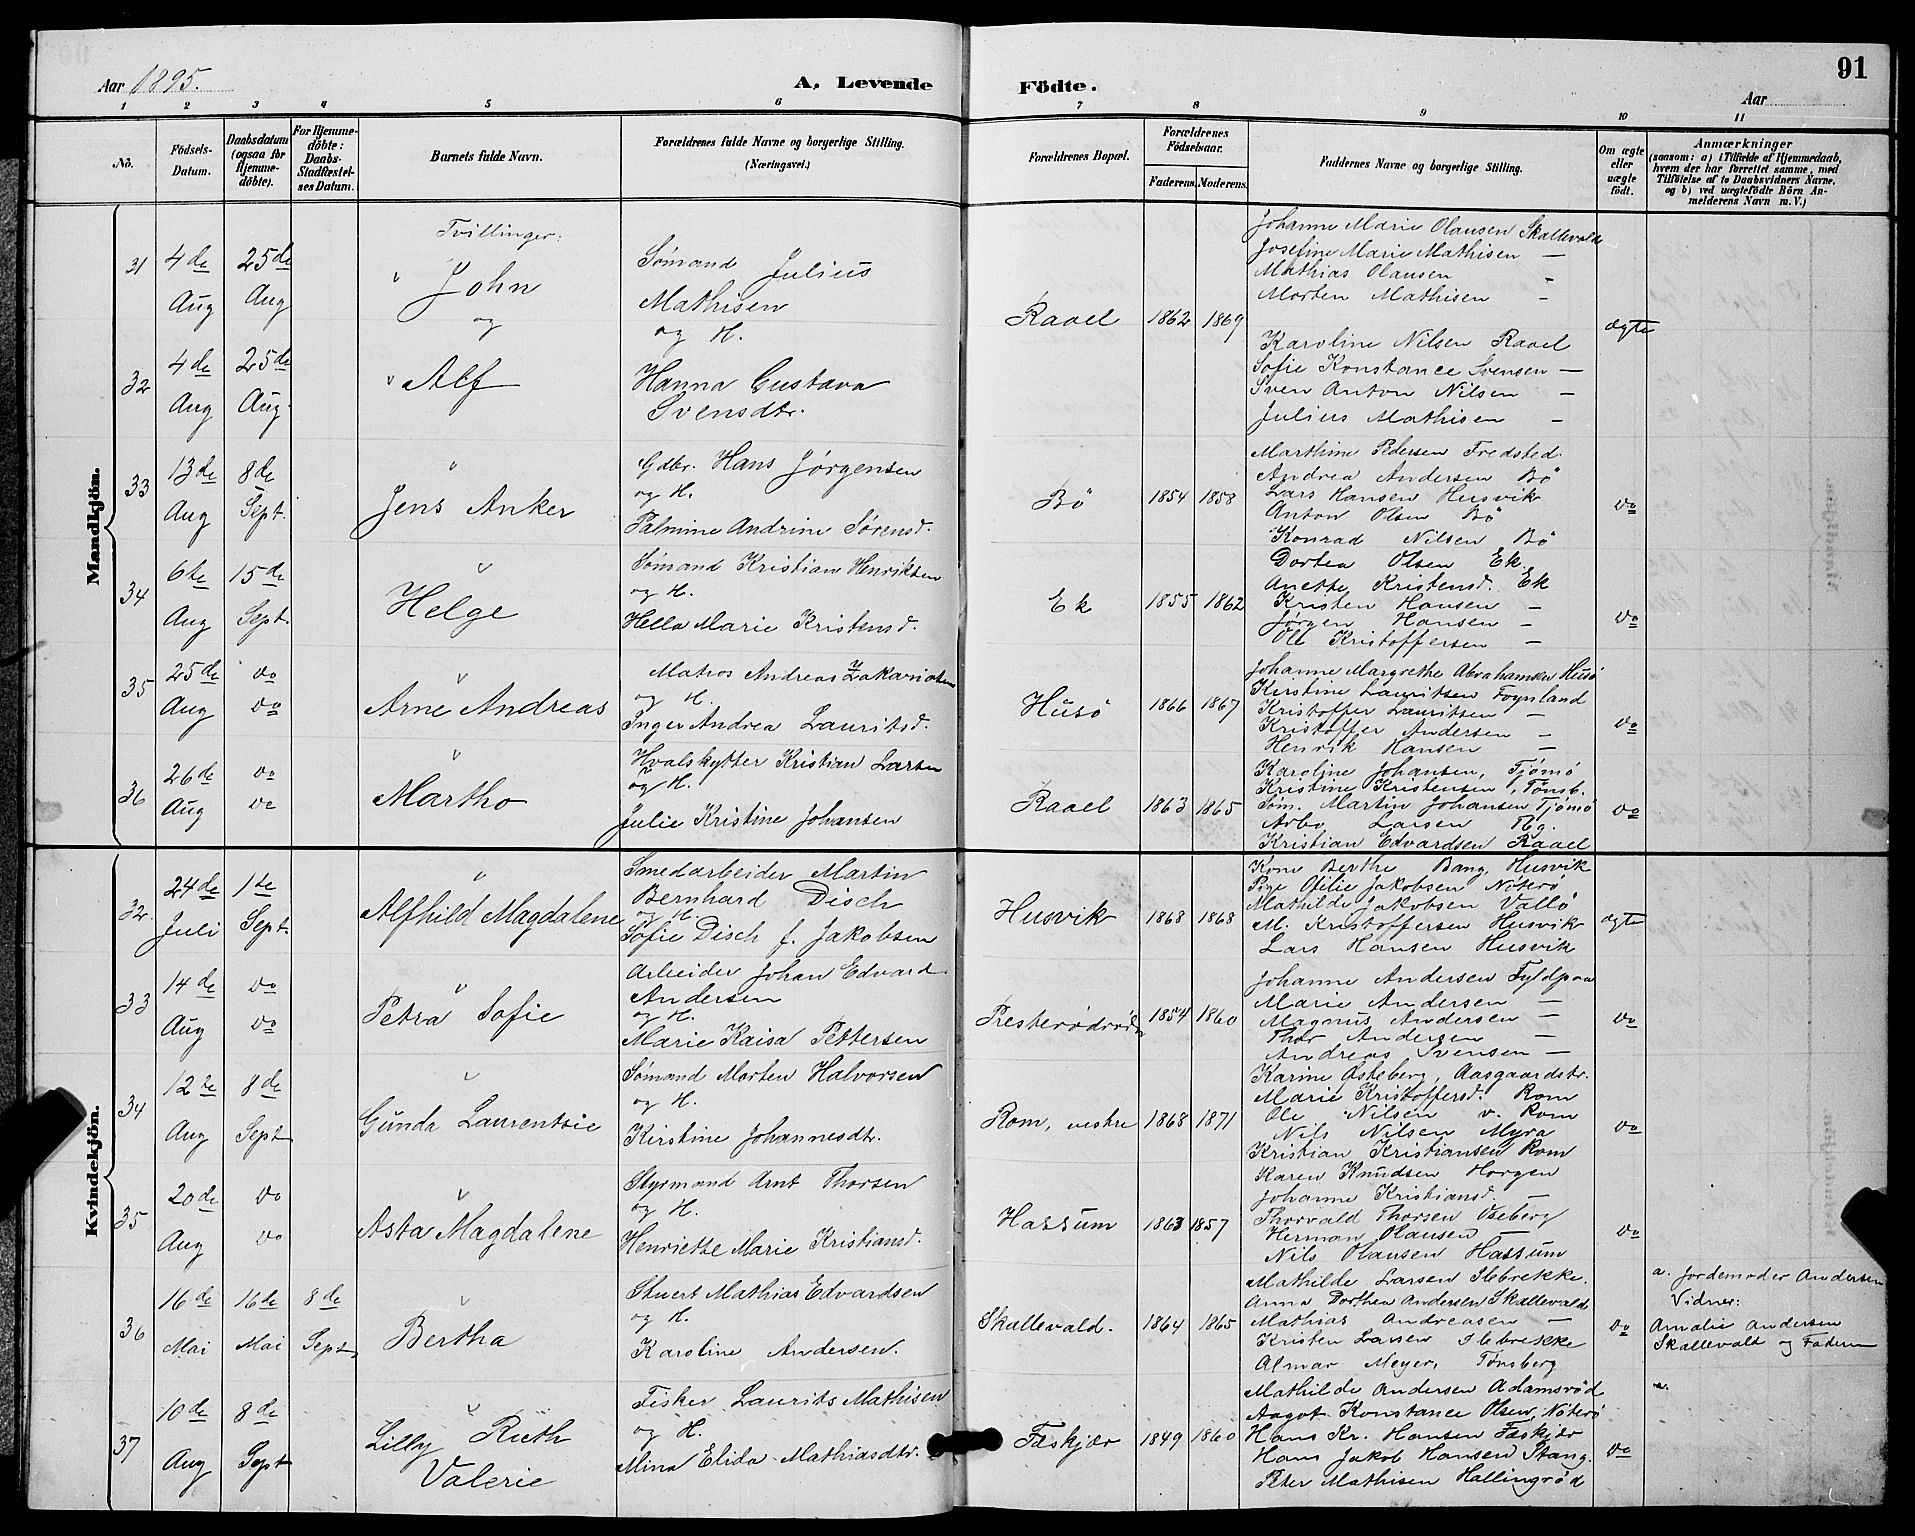 91
Aar 1895.
A. Levende
Födte.
Aar
1 2 3 4 5 6 7 8 9 10 11
Nö.
Födsels-
Datum.
Daabsdatum
(ogsaa för
Hjemme-
döbte).
For Hjemme-
döbte:
Daabs-
Stadfæstel-
ses Datum.
Barnets fulde Navn.
Forældrenes fulde Navne og borgerlige Stilling.
(Næringsvei.)
Forældrenes Bopæl.
Forældrenes
Födselsaar.
Faderens. Moderens.
Faddernes Navne og borgerlige Stilling.
Om ægte
eller
uægte
födt.
Anmærkninger
(saasom: a) i Tilfælde af Hjemmedaab,
hvem der har forrettet samme, med
Tilföielse af to Daabsvidners Navne.
og b) ved uægtefödte Börn An-
melderens Navn m. V.)
Mandkjön.
Tvillinger:
31
4de
Aug
25de
Aug
John
og
Sømand Julius
Mathisen
og H.
Raael
1862 1869
Johanne Marie Olausen Skallevold
Josefine Marie Mathisen —
Mathias Olausen —
Morten Mathisen —
ægte
32
4de
Aug
25de
Aug.
Alf
Hanna Gustava
Svensdtr.
Karoline Nilsen Raael
Sofie Konstance Svensen —
Sven Anton Nilsen —
Julius Mathisen —
33
13de
Aug
8de
Sept.
Jens Anker
Gdbr. Hans Jørgensen
og H.
Palmine Andrine Sørensd.
Bö
1854 1858
Marthine Pedersen Fredsted.
Andrea Andersen Bö
Lars Hansen Husvik
Anton Olsen Bö
Konrad Nilsen Bö
do
34
6te
Aug
15de
Sept.
Helge
Sømand Kristian Henriksen
og H.
Hella Marie Kristensd.
Ek
1855 1862
Dortea Olsen Ek.
Anette Kristensd. Ek
Kristen Hansen —
Jørgen Hansen —
Ole Kristoffersen —
do
35
25de
Aug
do
do
Arne Andreas
Matros Andreas Zakariasen
og H.
Inger Andrea Lauritsd.
Husö
1866 1867
Johanne Margrethe Abrahamsen Husö
Kirstine Lauritsen Foynland
Kristoffer Lauritsen —
Kristoffer Andersen —
Henrik Hansen —
do
36
26de
Aug
do
do
Martho
Hvalskytter Kristian Larsen
og H.
Julie Kristine Johansen
Raael
1863 1865
Karoline Johansen, Tjømø
Kristine Kristensen, Tønsb.
Søm. Martin Johansen Tjømø
Arbo Larsen Tbg.
Kristian Edvardsen Raael
do
Kvindekjön.
32.
24de
Juli
1te
Sept.
Alfhild Magdalene
Smedarbeider Martin
Bernhard Disch
og H.
Sofie Disch f. Jakobsen
Husvik
1868 1868
Kone Berthe Bang, Husvik
Pige Otilie Jakobsen Nøterø
Mathilde Jakobsen Vallö
M. Kristoffersen Husvik
Lars Hansen Husvik
ægte
33
14de
Aug
do
do
Petra Sofie
Arbeider Johan Edvard
Andersen
og H.
Marie Kaisa Pettersen
1854 1860
Johanne Andersen Fyldpaa
Marie Andersen —
Magnus Andersen —
Thor Andersen —
Andreas Svensen —
do
34
12te
Aug
8de
Sept
Gunda Laurentsie
Sømand Morten Halvorsen
og H.
Kirstine Johannesdtr.
Rom, vestre
1868 1871
Karine Østeberg, Aasgaardstr.
Marie Kristoffersd. Rom
Ole Nilsen v. Rom
Nils Nilsen Myra
Kristian Kristiansen Rom
do
35
20de
Aug
do
do
Asta Magdalene
Styrmand Arnt Thorsen
og H.
Henriette Marie Kristiansd.
Hassum
1863 1857
Karen Knudsen Horgen
Johanne Kristiansd. —
Thorvald Thorsen Oseberg
Herman Olausen —
Nils Olausen Hassum
do
36
16de
Mai
16de
Mai
8de
Sept
Bertha
Stuert Mathias Edvardsen
og H.
Karoline Andersen.
Skallevald.
1864 1865
Mathilde Larsen Ilebrekke.
Anna Dorthea Andersen Skallevald
Mathias Andreasen —
Kristen Larsen Ilebrekke
Almar Meyer, Tønsberg
do
a. Jordemoder Andersen
Vidner:
Amalie Andersen
Skallevalt og Faderen
37
10de
Aug
8de
Sept
Lilly Ruth
Valerie
Fisker Laurits Mathisen
og H.
Mina Elida Mathiasdtr.
Fæskjær
1849 1860
Mathilde Andersen Adamsröd
Aagot Konstance Olsen, Nøterø
Hans Kr. Hansen Fæskjær
Hans Jakob Hansen Stang.
Peter Mathisen Hallingröd
do
a.